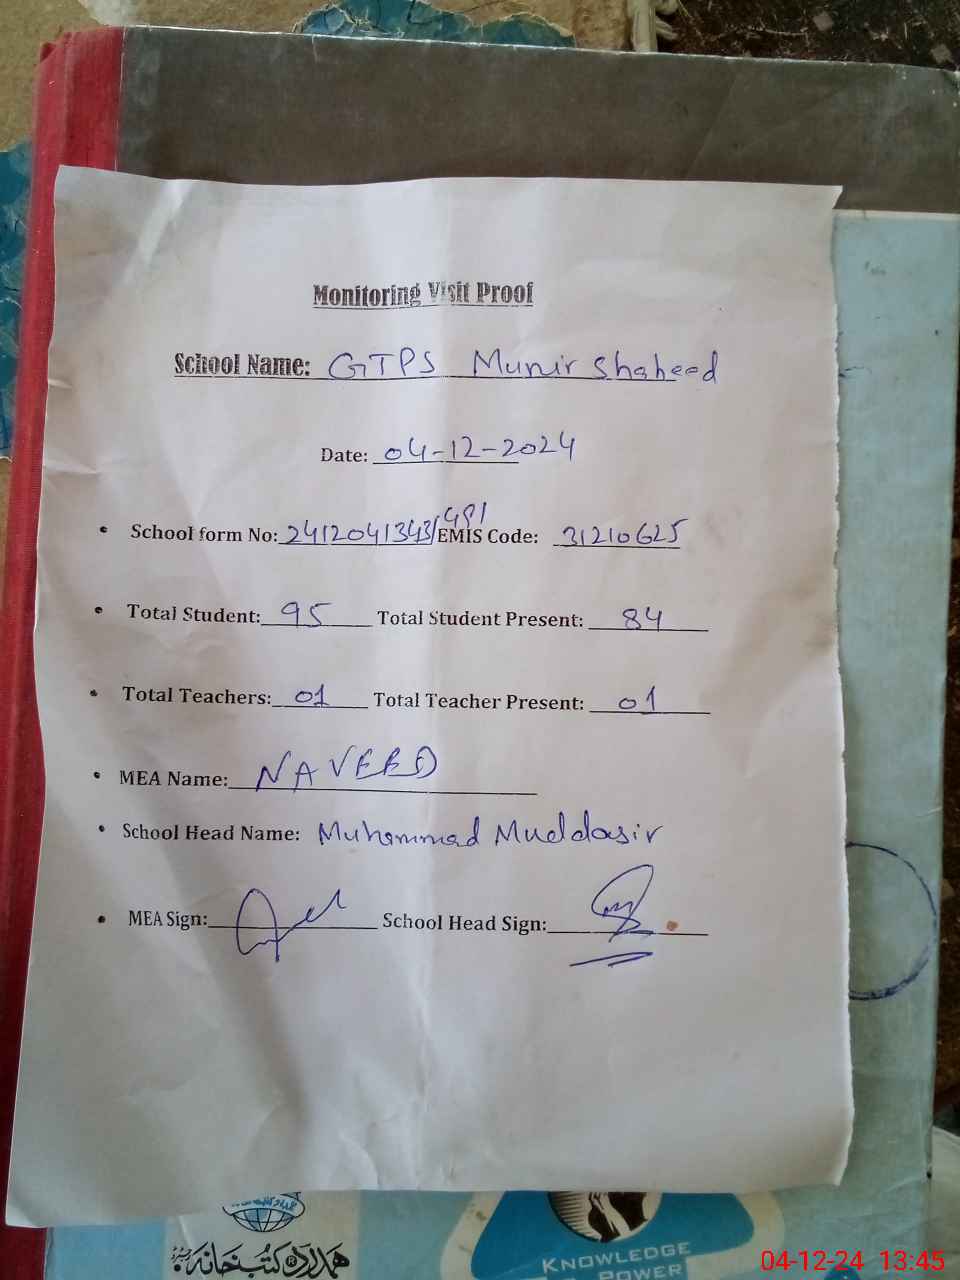 Monitoring Visit Proof
School Name: GTPS Munir Shaheed
Date: 04-12-2024
School form No: 2412041343/491 EMIS Code: 31210625
Total Student: 95 Total Student Present: 84
Total Teachers: 01 Total Teacher Present: 01
MEA Name: NAVEED
School Head Name: Muhammad Muddasir
MEA Sign: School Head Sign:
ہمدرد کتب خانہ
KNOWLEDGE
POWER
04-12-24 13:45